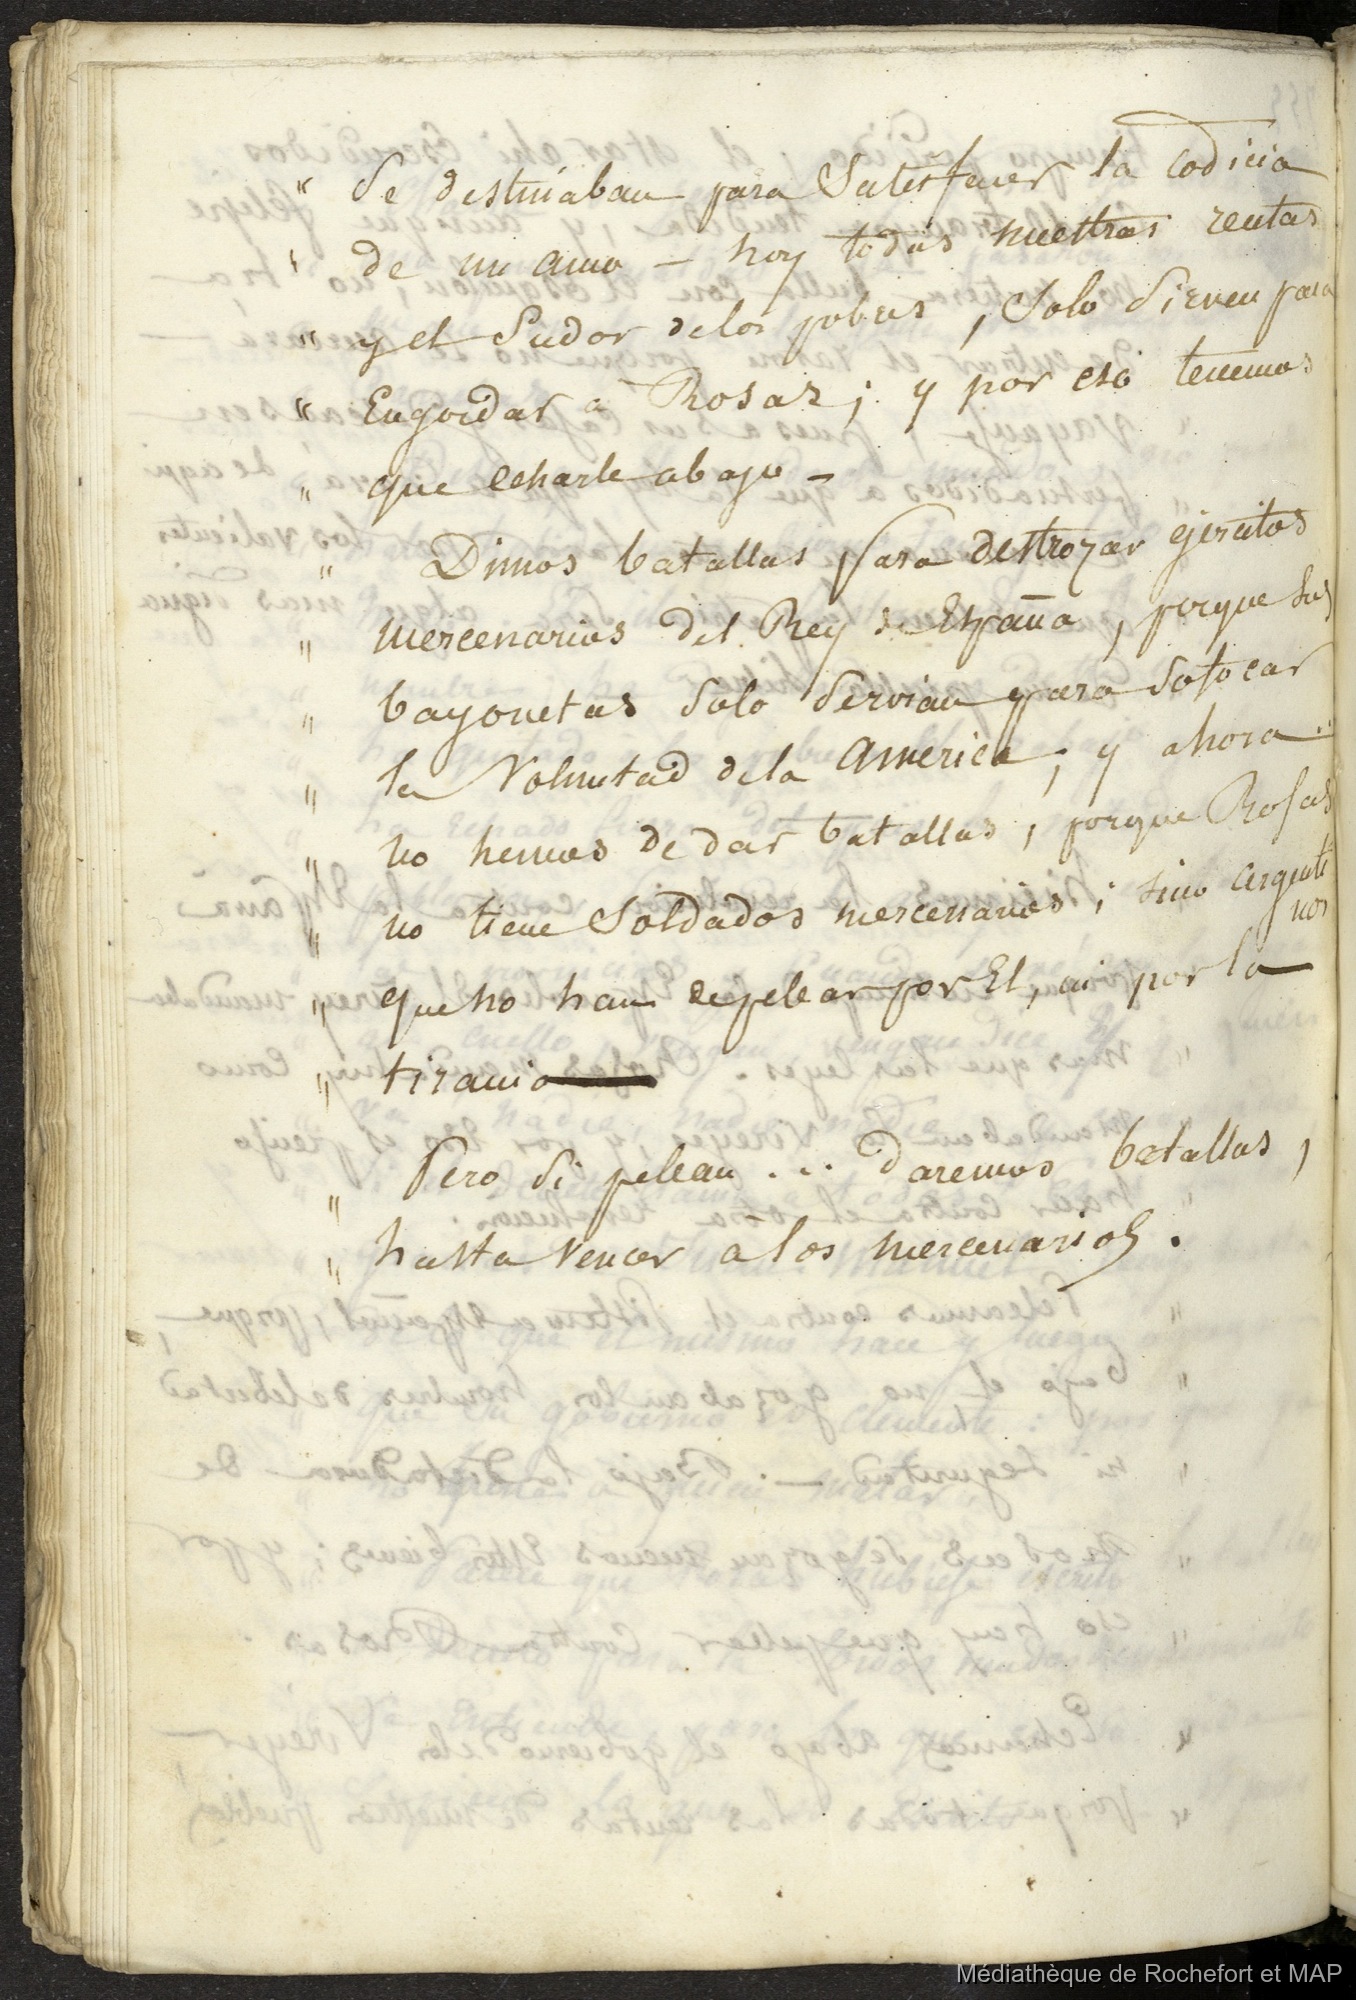 " Se destinaban para Satisfacer la codicia
" de un amo – hoy todas nuestras rentas
" y el Sudor delos pobres, Solo Sirven para
" Engordar a Rosas; y por eso tenemos
" que echarle abajo –
" Dimos batallas para destrozar ejercitos
" mercenarios del Rey de España, porque sus
" bayonetas Solo Servian para Sofocar
" la Voluntad dela America; y ahora..
" no hemos de dar batallas, porque Rosas
" no tiene Soldados mercenarios; sino argenti
nos
" que no han de pelear por El, ni por la
" tirania
" Pero Si pelean ... daremos batallas,
" hasta Vencer a los mercenarios.
Médiathèque de Rochefort et MAP